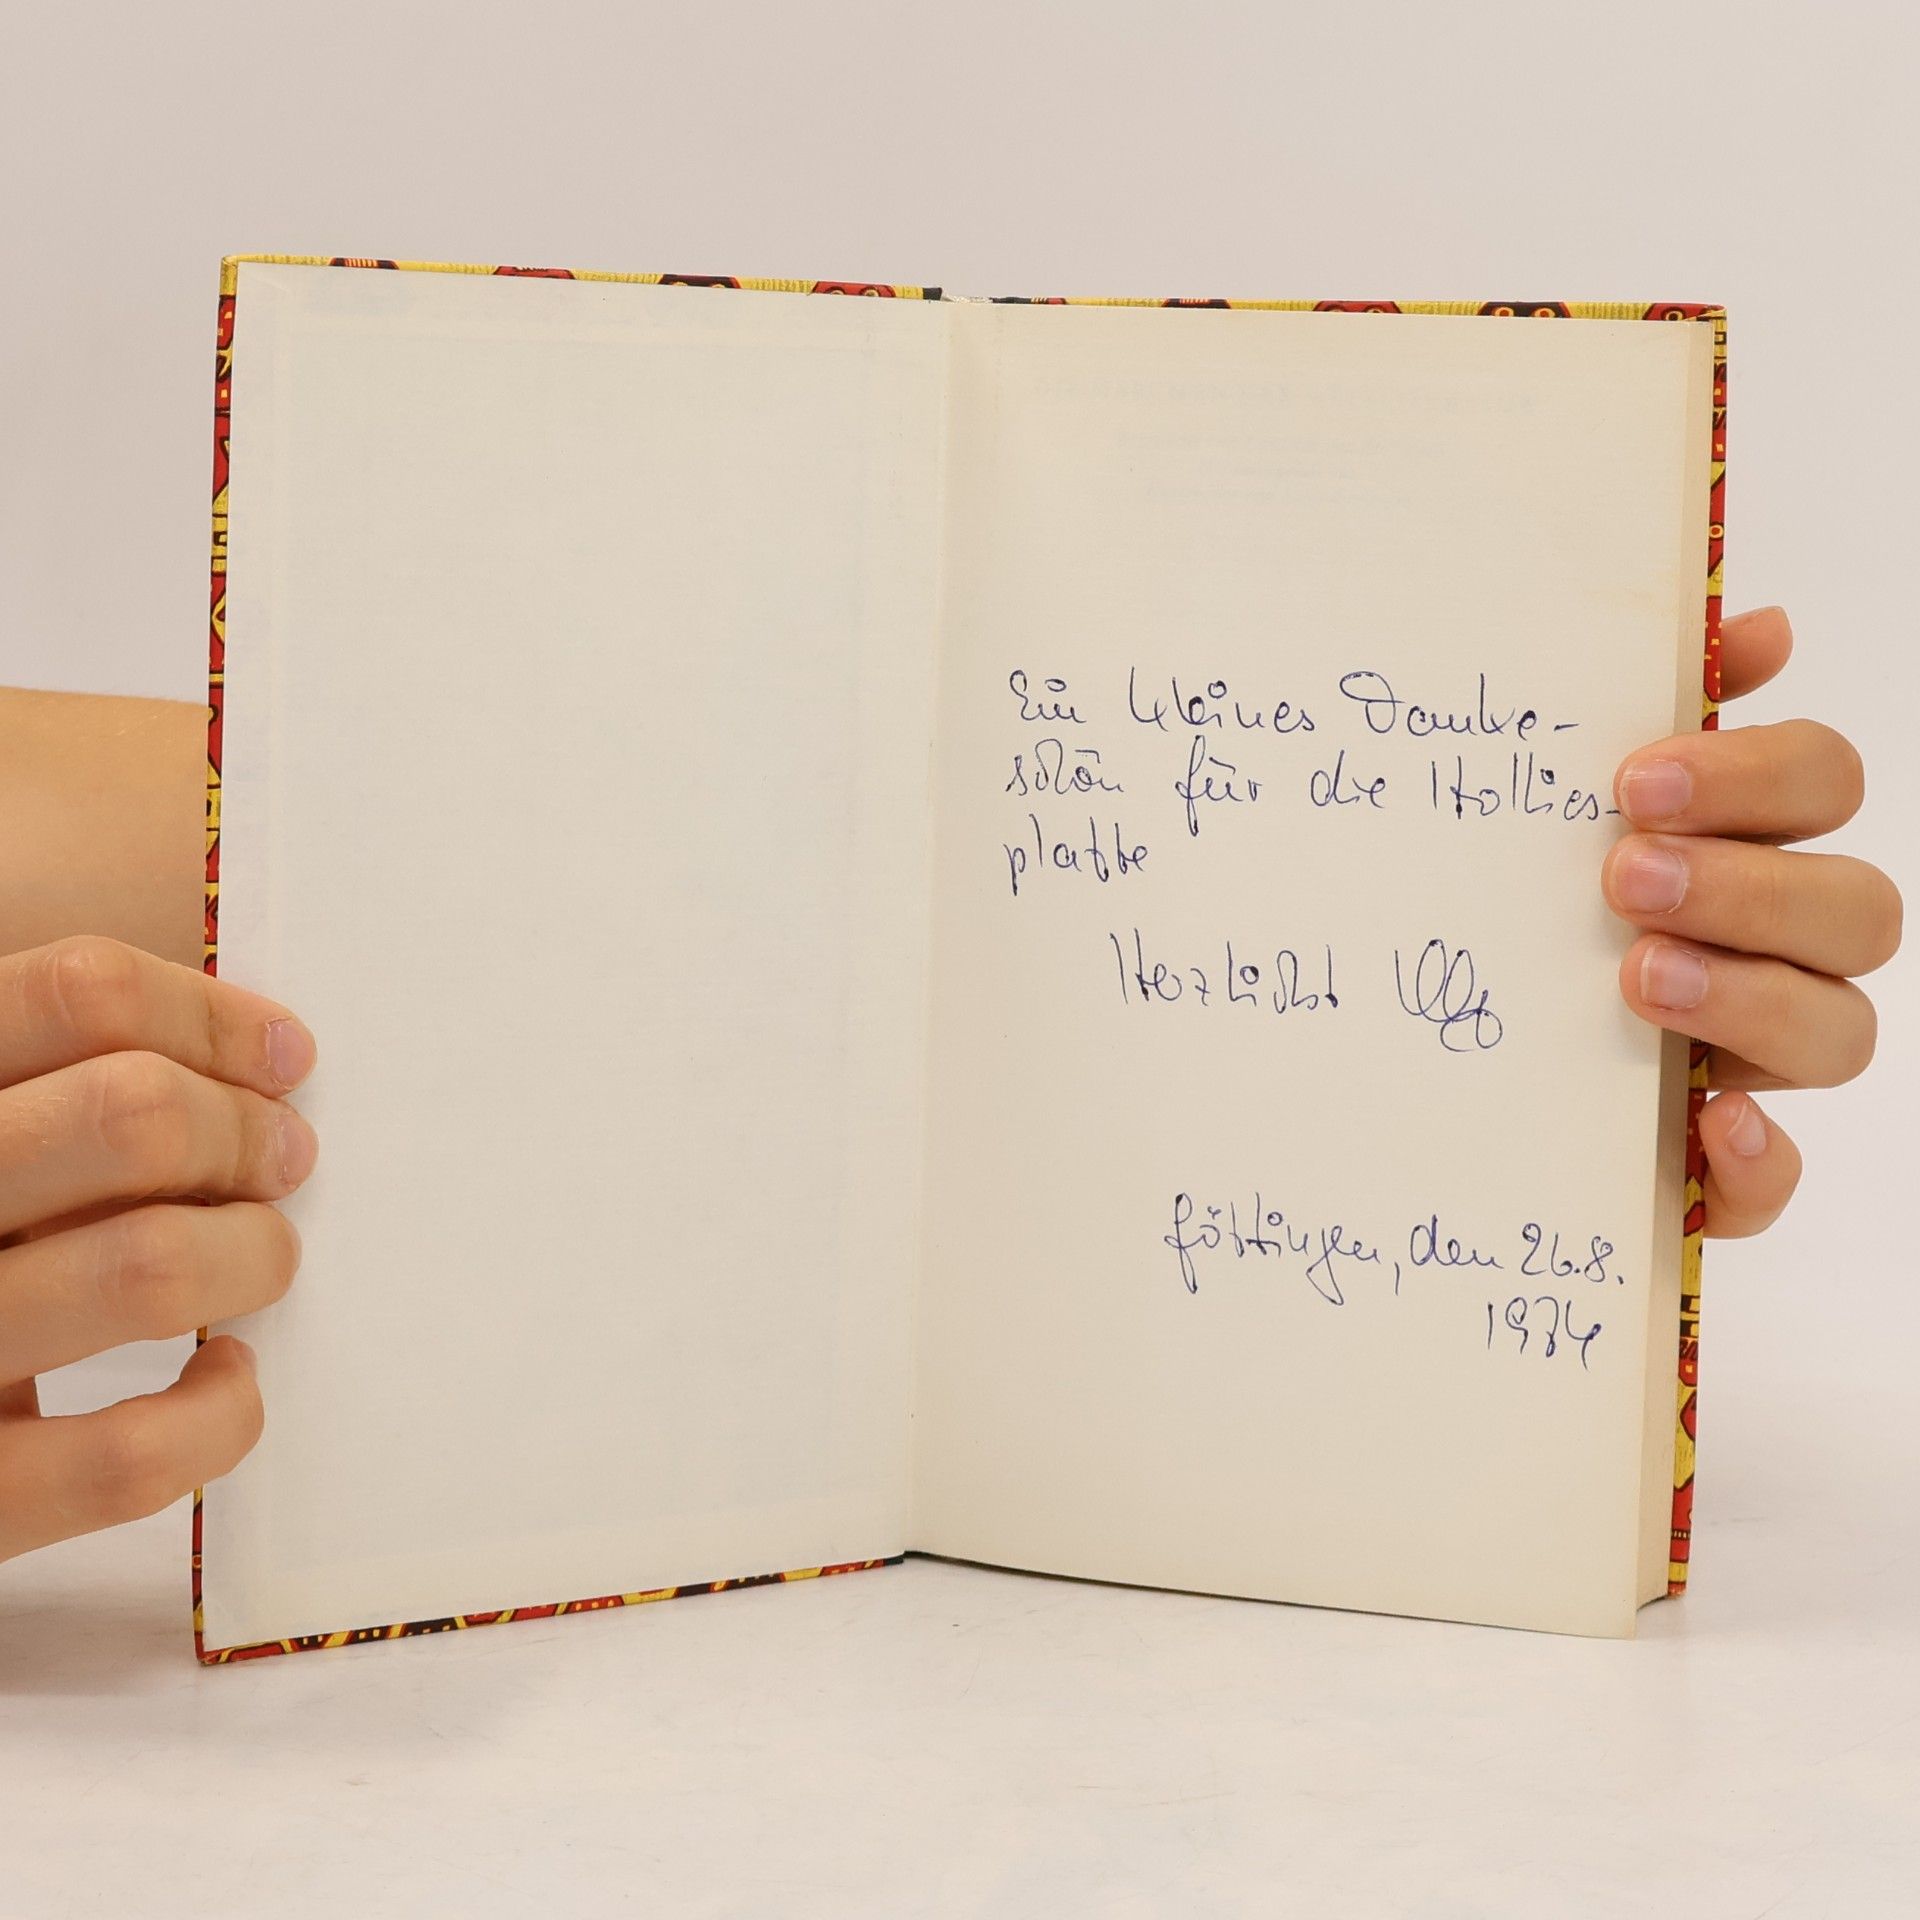 Ein kleines Danke-
schön für die Hollies-
platte
Herzlichst
Göttingen, den 26.8.
1974